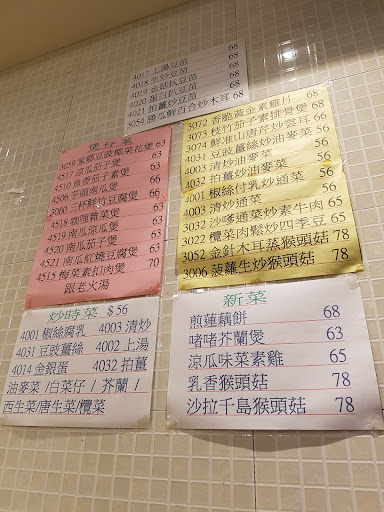 4017 上湯豆苗 68
4018 生炒豆苗 68
4019 金菇扒豆苗 68
4020 蛋白扒豆苗 68
4021 拍薑炒豆苗 68
3054 勝瓜鮮百合炒木耳 68
煲仔菜
3059 家鄉豆豉椰菜花煲 63
4517 涼瓜茄子煲 63
4510 魚香茄子素煲 63
4506 芋頭南瓜煲 66
3060 三杯鮮竹豆腐煲 66
4518 咖喱雜菜煲 63
4519 南瓜涼瓜煲 63
4520 南瓜茄子煲 63
4521 南瓜紅燒豆腐煲 63
4515 梅菜素扣肉煲 70
跟老火湯
3072 香脆黃金素雞片 68
3073 枝竹茄子素排骨煲 68
3074 鮮淮山唐芹炒雲耳 66
4031 豆豉薑絲炒油麥菜 56
4003 清炒油麥菜 56
4032 拍薑炒油麥菜 56
4001 椒絲付乳炒通菜 56
4003 清炒通菜 56
3032 沙嗲通菜炒素牛肉 65
3022 欖菜肉鬆炒四季豆 65
3052 金針木耳蒸猴頭菇 78
3006 菠蘿生炒猴頭菇 78
炒時菜 $56
4001 椒絲腐乳 4003 清炒
4031 豆豉薑絲 4002 上湯
4014 金銀蛋 4032 拍薑
油麥菜 /白菜仔 / 芥蘭 /
西生菜/唐生菜/欖菜
新菜
煎蓮藕餅 68
啫啫芥蘭煲 63
涼瓜味菜素雞 65
乳香猴頭菇 78
沙拉千島猴頭菇 78